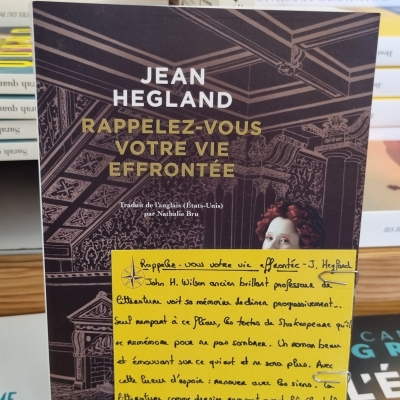 JEAN
HEGLAND
RAPPELEZ-VOUS
VOTRE VIE
EFFRONTÉE
Traduit de l'anglais (États-Unis)
par Nathalie Bru
Rappelez-vous votre vie effrontée - J. Hegland
John H. Wilson ancien brillant professeur de
littérature voit sa mémoire decliner progressivement...
Seul rempart à ce fléau, les textes de Shakespeare qu'il
se remémore pour ne pas sombrer. Un roman beau
et émouvant sur ce qui est et ne sera plus. Avec
cette lueur d'espoir : renouer avec les siens. La
littérature comme dernier rempart
Sarah
Sarah